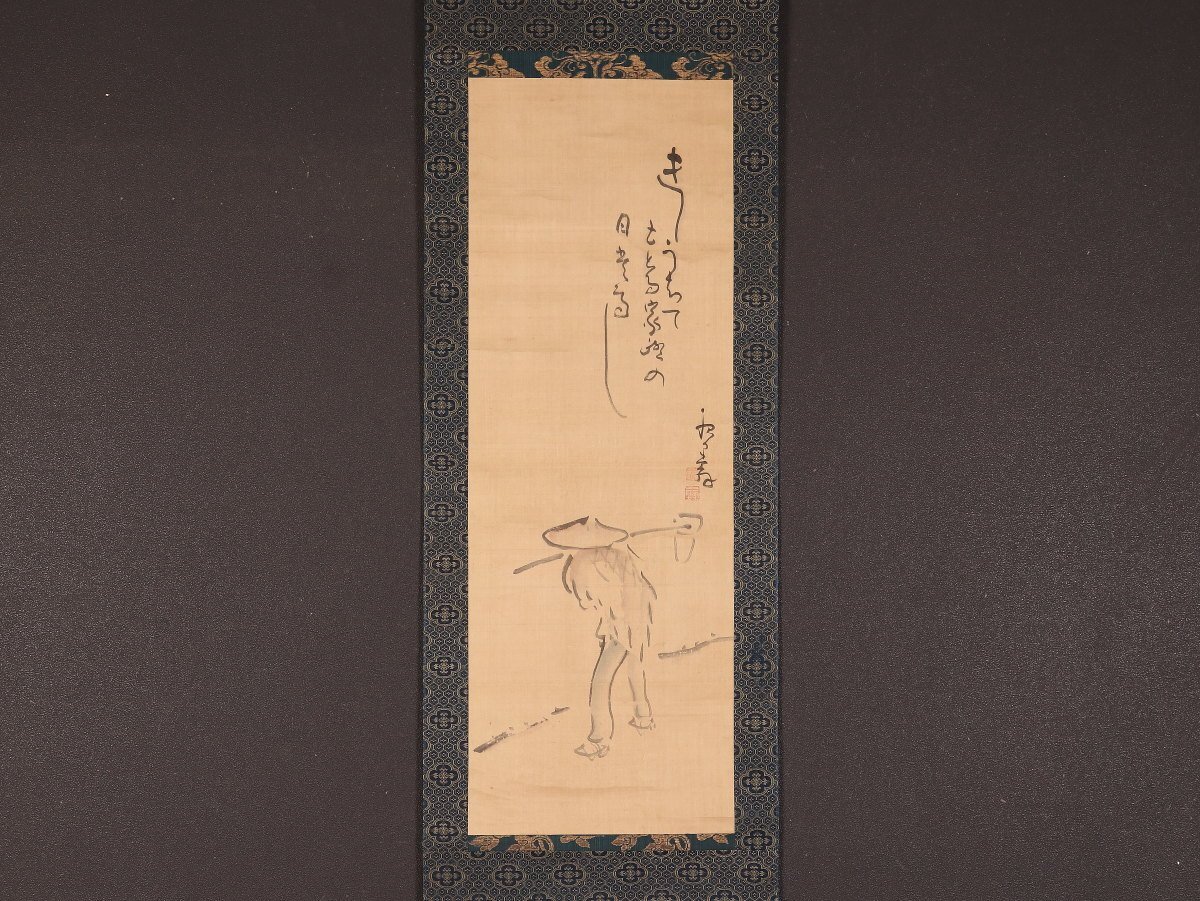 きしうちて
もとる家路の
日は高し